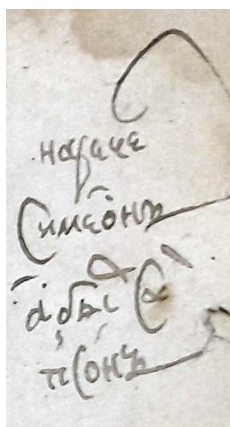 нарече
Симеонъ
абы Са
псонъ